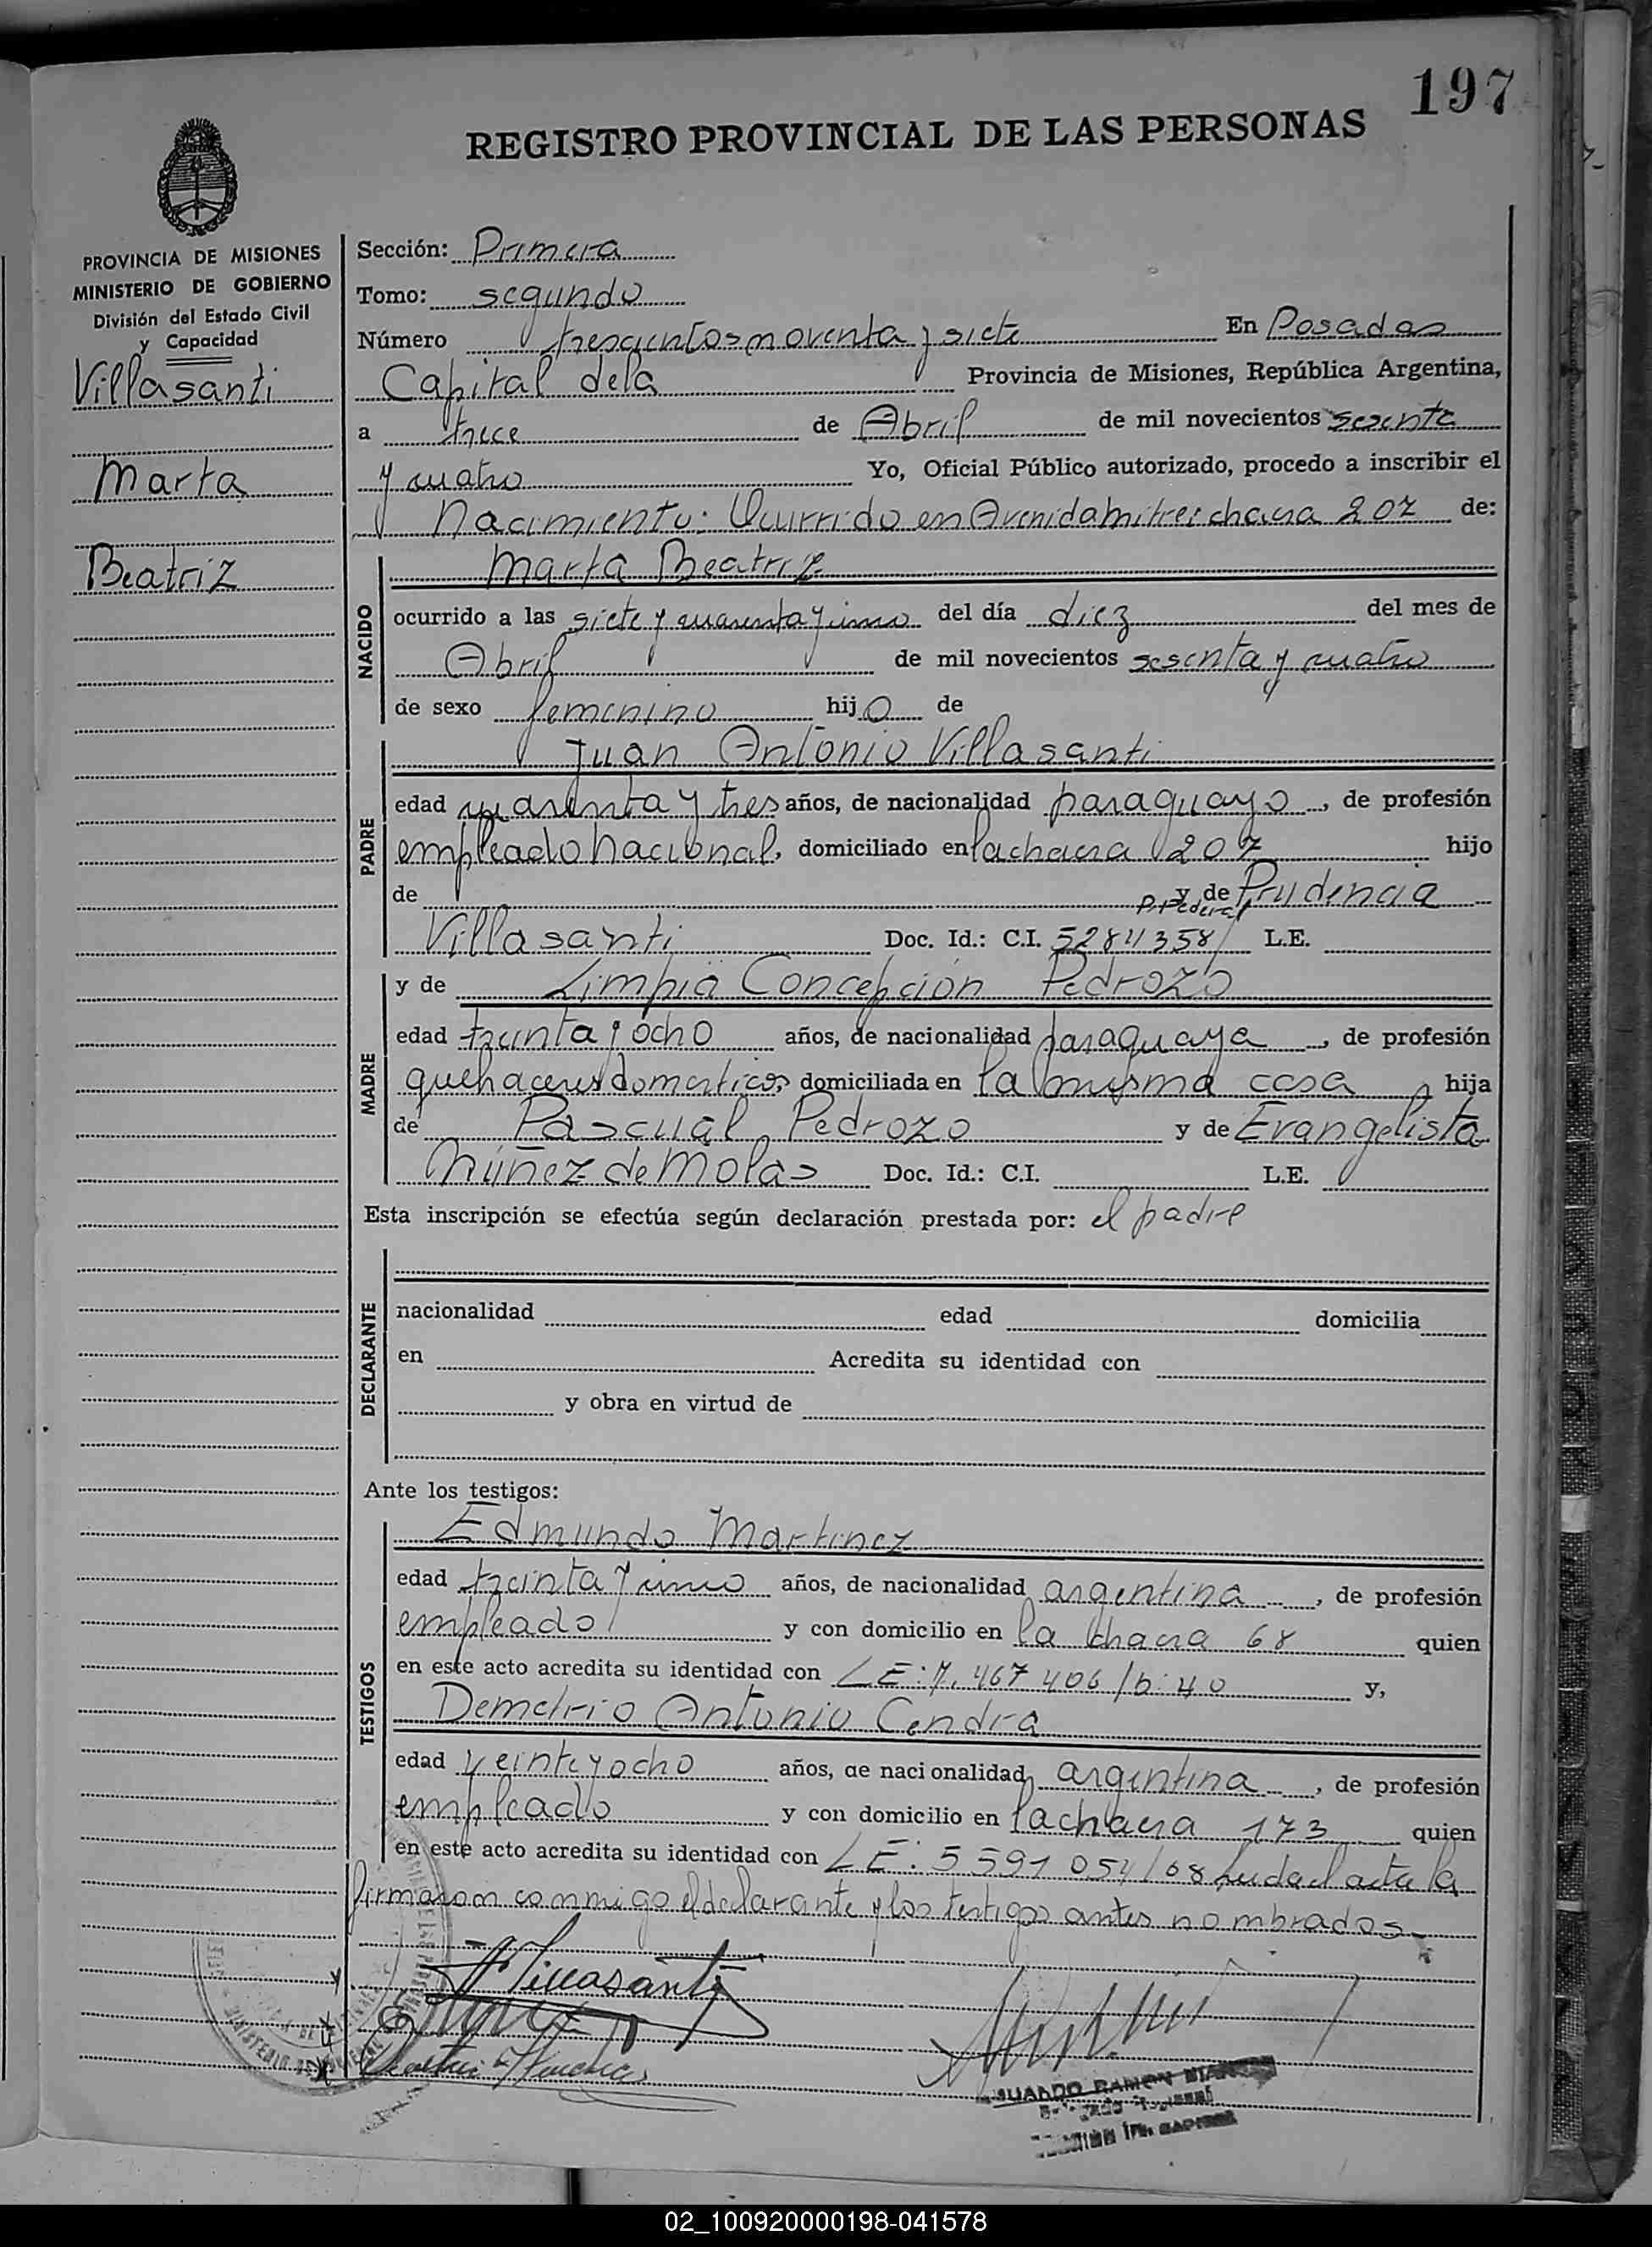 197
REGISTRO PROVINCIAL DE LAS PERSONAS
PROVINCIA DE MISIONES
MINISTERIO DE GOBIERNO
División del Estado Civil
y Capacidad
Villasanti
Marta
Beatriz
Sección: Primera
Tomo: segundo
Número trescientos noventa y siete En Posadas
Capital de la Provincia de Misiones, República Argentina,
a trece de Abril de mil novecientos sesenta
y cuatro Yo, Oficial Público autorizado, procedo a inscribir el
Nacimiento: Ocurrido en Avenida mitre: chacra 207 de:
NACIDO
Marta Beatriz
ocurrido a las siete y cuarenta y cinco del día diez del mes de
Abril de mil novecientos sesenta y cuatro
de sexo femenino hijo de
PADRE
Juan Antonio Villasanti
edad cuarenta y tres años, de nacionalidad paraguayo, de profesión
empleado nacional, domiciliado en la chacra 207 hijo
de y de Prudencia
P. Federal
Villasanti Doc. Id.: C.I. 5284358/ L.E.
MADRE
y de Limpia Concepción Pedrozo
edad treinta y ocho años, de nacionalidad paraguaya, de profesión
quehaceres domesticos, domiciliada en la misma casa hija
de Pascual Pedrozo y de Evangelista
Núñez de Molas Doc. Id.: C.I. L.E.
Esta inscripción se efectúa según declaración prestada por: el padre
DECLARANTE
nacionalidad edad domicilia
en Acredita su identidad con
y obra en virtud de
Ante los testigos:
TESTIGOS
Edmundo Martinez
edad treinta y cinco años, de nacionalidad argentina, de profesión
empleado y con domicilio en la chacra 68 quien
en este acto acredita su identidad con LE: 7.467 406/D: 40 y,
Demetrio Antonio Cendra
edad veinte y ocho años, de nacionalidad argentina, de profesión
empleado y con domicilio en la chacra 173 quien
en este acto acredita su identidad con LE: 5591 054/68 Leida el acta la
firmaron conmigo el declarante y los testigos antes nombrados.
Villasanti
RAMON
02_100920000198-041578